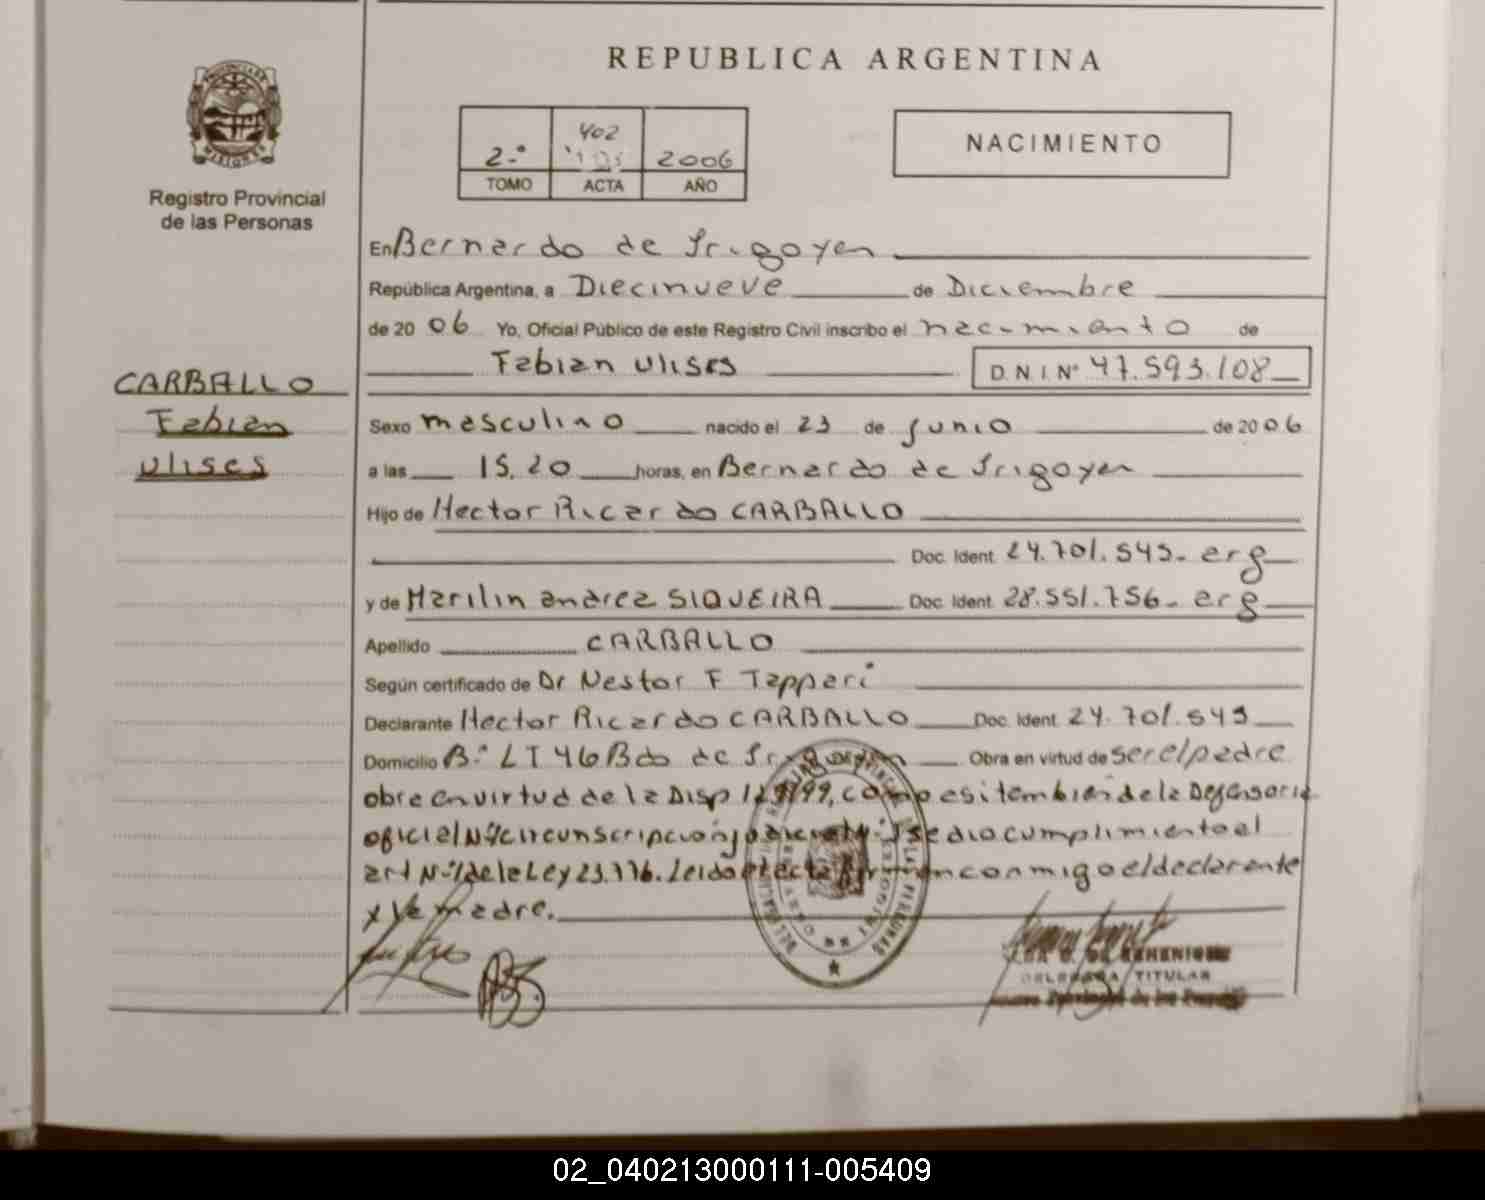 REPUBLICA ARGENTINA
NACIMIENTO
402
2.º 2006
TOMO ACTA AÑO
PROVINCIA DE MISIONES
Registro Provincial
de las Personas
En Bernardo de Irigoyen
República Argentina, a Diecinueve de Diciembre
de 20 06 Yo, Oficial Público de este Registro Civil inscribo el nacimiento de
Fabian Ulises D.N.I. Nº 47.593.108
CARBALLO
Fabian
Ulises
Sexo masculino nacido el 23 de junio de 2006
a las 15,20 horas, en Bernardo de Irigoyen
Hijo de Hector Ricardo CARBALLO
Doc. Ident. 24.701.545- arg
y de Marilin andrea SIQUEIRA Doc. Ident. 28.551.756- arg
Apellido CARBALLO
Según certificado de Dr Nestor F Tappari
Declarante Hector Ricardo CARBALLO Doc. Ident. 24.701.545
Domicilio Bº LT 46 Bdo de Irigoyen Obra en virtud de ser el padre
obra en virtud de la Disp 129/99, como asi tambien de la Defensoria
oficial Nº4 circunscripcion judicial y se dio cumplimiento al
art Nº1 de la Ley 23.776. Leida el acta firman conmigo el declarante
y la madre.
DELEGADA TITULAR
Provincial de las Personas
02_040213000111-005409